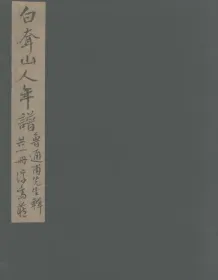 白耷山人年譜
魯通甫先生輯
共一冊